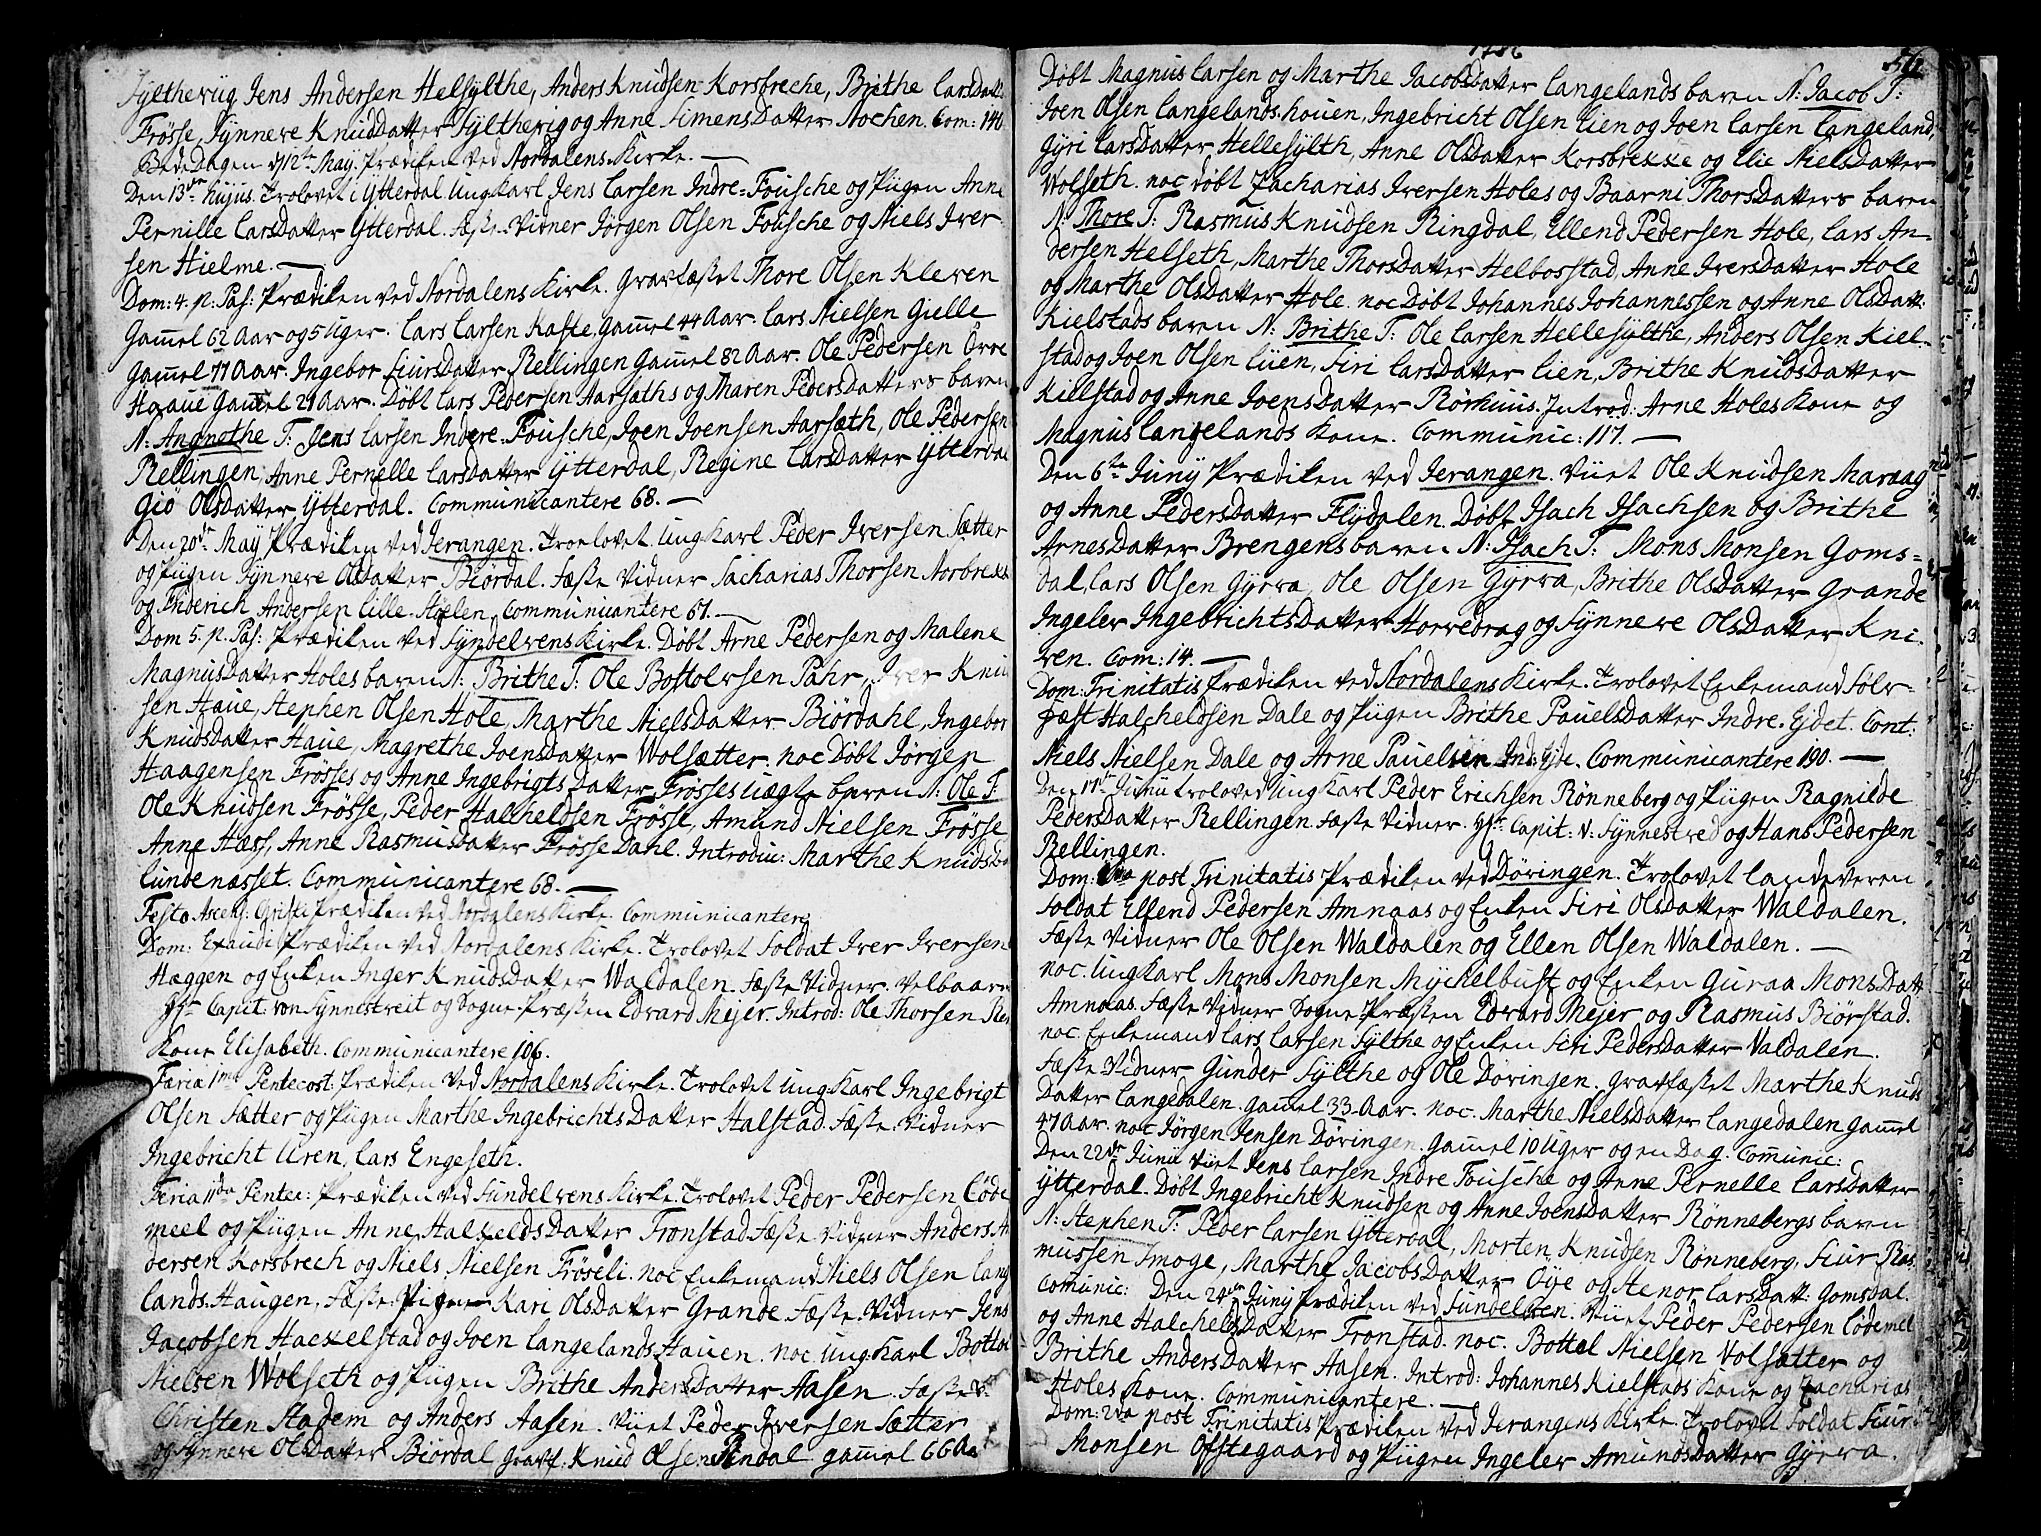 Syltherüg Jens Andersen Helsylthe, Anders Knudsen Korsbreche, Brithe Larsdatt
Frösse, Synnere Knudsdatter Sÿltherig og Anne SimensDatter Nochen. Com: 140
BedeDagen d 12te Maÿ. Prædiken ved Nordalens Kirke. —
Den 13de hujus. Trolovet i Ytterdal UngKarl Jens Larsen Indre=Fousche og Pigen Anne
Pernille Larsdatter Ytterdal. Fæste Vidner Jörgen Olsen Fousche og Niels Iver-
sen Hielme. —
Dom: 4. p: Pas: Prædiken ved Nordalens Kirke. Gravfæstet Thore Olsen Kleven
Gamel 62 Aar og 5 Uger. Lars Larsen Kaste, Gamel 44 Aar. Lars Nielsen Gielle
Gamel 77 Aar. Ingebor SiursDatter Rellingen Gamel 82 Aar. Ole Pedersen Örre
Haaue Gamel 21 Aar. Döbt Lars Pedersen Aarsæths og Maren PedersDatters baren
N: Angnethe T: Jens Larsen Indere Fousche, Joen Joensen Aarsæth, Ole Pedersen
Rellingen, Anne Pernelle Larsdatter Ytterdal, Regine Larsdatter Ytterdal
Giö Olsdatter Ytterdal. Communicantere 68. —
Den 20de Maÿ Prædiken ved Ierangen. Troelovet UngKarl Peder Iversen Sætter
og Pigen Synnere Olsdatter Biördal. Fæste Vidner Sacharias Thorsen Norbrekke
og Friderich Andersen Lille-Stölen. Communicantere 51. —
Dom 5. p. Pas: Prædiken ved Sÿndelvens Kirke. Döbt Arne Pedersen og Malene
MagnusDatter Holes baren N: Brithe T: Ole Bottolvsen Pahr, Iver Knu
sen Haue, Stephen Olsen Hole, Marthe NielsDatter Biördahl, Ingebor
Knudsdatter Haue, Magrethe Joensdatter Wolsætter. noc Döbt Jörgen
Haagensen Frösses og Anne IngebrigtsDatter Frösses uægte baren N: Ole T:
Ole Knudsen Frösse, Peder Halcheldsen Frösse, Amund Nielsen Frösse
Anne Hæss, Anne Rasmusdatter Frösse Dahl. Introduc: Marthe Knudsda
Lundenæsset. Communicantere 68. —
Festo Ascens: Christi Prædiken ved Nordalens Kirke. Communicantere
Dom: Exaudi Prædiken ved Nordalens Kirke. Trolovet Soldat Iver Iversen
Hæggen og Enken Inger Knudsdatter Waldalen. Fæste Vidner. Velbaarn
Hr Capit: von Synnestreit og Sogne-Præsten Edvard Mejer. Introd: Ole Thorsen
Kone Elisabeth. Communicantere 106.
Færia 1ma Pentecost: Prædiken ved Nordalens Kirke. Trolovet UngKarl Ingebrigt
Olsen Sætter og Pigen Marthe IngebrichtsDatter Halstad. Fæste Vidner
Ingebricht Uren, Lars Engeseth.
Feria IIda Pentec: Prædiken ved Sundelvens Kirke. Trolovet Peder Pedersen Löde
meel og Pigen Anne HalcheldsDatter Tronstad. Fæste Vidner Anders A
dersen Korsbrech og Niels Nielsen Fröseli. noc Enkemand Niels Olsen Lang
lands-Haugen, Fæste: Pigen Kari Olsdatter Grande. Fæste-Vidner Jens
Jacobsen Haexelstad og Joen Langelands Hauen. noc. Ungkarl Bottol
Nielsen Wolseth og Pigen Brithe AndersDatter Aasen. Fæste V:
Christen Stadem og Anders Aasen. Viiet Peder Iversen Sætter
og Synnere Olsdatter Biördal Gravf: Knud Olsen Rindal gamel 66 Aa
1786
Döbt Magnus Larsen og Marthe Jacobsdatter Langelands baren N: Jacob T:
Joen Olsen Langelands-houen, Ingebricht Olsen Lien og Joen Larsen Langeland,
Gÿri Larsdatter Hellesÿlth, Anne Olsdatter Korsbrekke og Elie Nielsdatter
Wolseth. noc döbt Zacharias Iversen Holes og Baarni Thorsdatters baren
N: Thore T: Rasmus Knudsen Ringdal, Ellend Pedersen Hole, Lars An-
dersen Helseth, Marthe Thorsdatter Helbostad, Anne Iversdatter Hole
og Marthe Olsdatter Hole. noc Döbt Johannes Johannessen og Anne Olsdatt:
Kielstads baren N: Brithe T: Ole Larsen Hellesÿlthe, Anders Olsen Kiel-
stad og Joen Olsen Lien, Siri Larsdatter Lien, Brithe Knudsdatter
Kielstad og Anne JoensDatter Rörhuus. Introd: Arne Holes Kone og
Magnus Langelands Kone. Communic: 117. —
Den 6te Junÿ Prædiken ved Ierangen. Viiet Ole Knudsen Maraag
og Anne Pedersdatter Flÿdalen. Döbt Isach Isachsen og Brithe
ArnesDatter Brengens baren N: Isach T: Mons Monsen Goms=
dal, Lars Olsen Gÿrra, Ole Olsen Gÿrra, Brithe Olsdatter Grande
Ingeler IngebrichtsDatter Horvedrag og Sÿnnere Olsdatter Kni-
ven. Com: 14. —
Dom: Trinitatis Prædiken ved Nordalens Kirke. Trolovet Enkemand Sölv-
fæst Halcheldsen Dale og Pigen Brithe Pauelsdatter Indre-Ejdet. Cont:
Niels Nielsen Dale og Arne Pauelsen Ind: Ejde. Communicantere 190. —
Den 17de Junii trolovet UngKarl Peder Erichsen Rönneberg og Pigen Ragnilde
Pedersdatter Rellingen. Fæste Vidner. Hr. Capit: v: Synnestred og Hans Pedersen
Rellingen.
Dom: 1ma post Trinitatis Prædiken ved Döringen. Trolovet Landeværen
Soldat Ellend Pedersen Amnaas og Enken Siri Olsdatter Waldalen.
Fæste Vidner Ole Olsen Waldalen og Ellen Olsen Waldalen. —
noc. UngKarl Mons Monsen Myckelbust og Enken Guraa MonsDatt
Amnaas. Fæste Vidner Sogne Præsten Edvard Mejer og Rasmus Biörstad.
noc. Enkemand Lars Larsen Sÿlthe og Enken Siri Pedersdatter Valdalen.
Fæste Vidner Gunder Sÿlthe og Ole Döringen. Gravfæstet Marthe Knuds
Datter Langedalen. gamel 33 Aar. noc. Marthe Nielsdatter Langedalen gamel
47 Aar. noc Jörgen Jensen Döringen. gamel 10 Uger og en Dag. Comunic:
Den 22de Junii Viiet Jens Larsen Indre Fousche og Anne Pernelle Larsdatter
Ytterdal. Döbt Ingebricht Knudsen og Anne Joensdatter Rönnebergs baren
N: Stephen T: Peder Larsen Ytterdal, Morten Knudsen Rönneberg, Siur Ras-
mussen Smoge, Marthe JacobsDatter Öÿe og Henor Larsdatt: Gomsdal.
Comunic: Den 24de Junÿ Prædiken ved Sundelven. Viiet Peder Pedersen Lödemel
og Anne HalcheldsDatter Tronstad. noc. Bottel Nielsen Volsætter og
Brithe AndersDatter Aasen. Introd: Johannes Kielstads Kone og Zacharias
Holes Kone. Communicantere. —
Dom: 2da post Trinitatis Prædiken ved Ierangens Kirke. Trolovet Soldat Siur
Monsen Ofstegaard og Pigen Ingeler Amundsdatter Gÿrra.